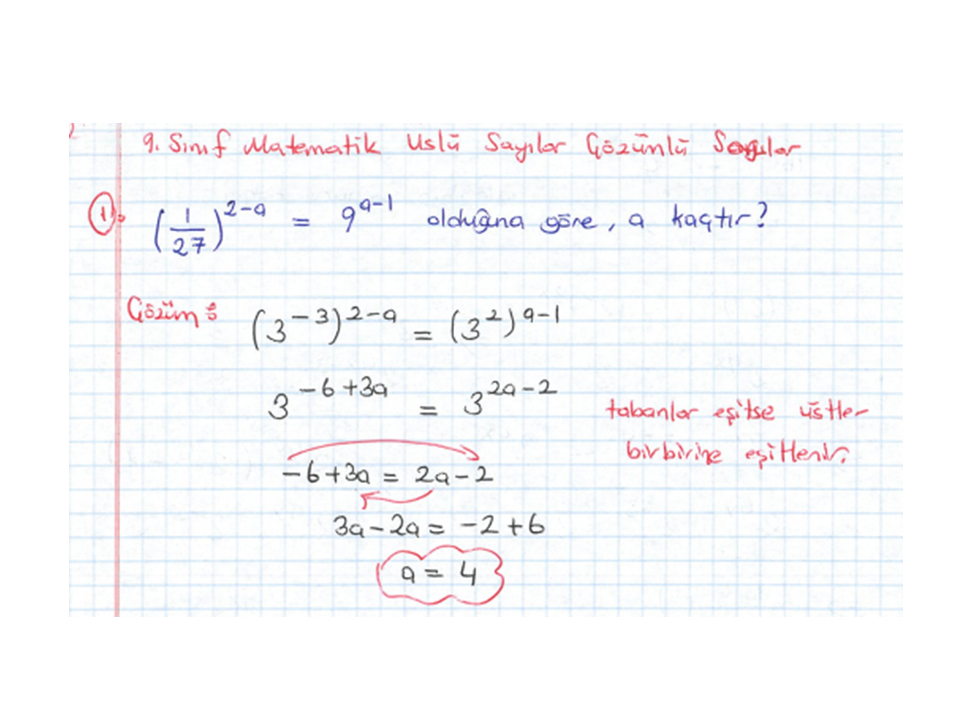 9. Sınıf Matematik Üslü Sayılar Çözümlü Sorular
1) (1/27)^(2-a) = 9^(a-1) olduğuna göre, a kaçtır?
Çözüm: (3^-3)^(2-a) = (3^2)^(a-1)
3^(-6+3a) = 3^(2a-2)
tabanlar eşitse üstler
birbirine eşitlenir.
-6+3a = 2a-2
3a-2a = -2+6
a = 4